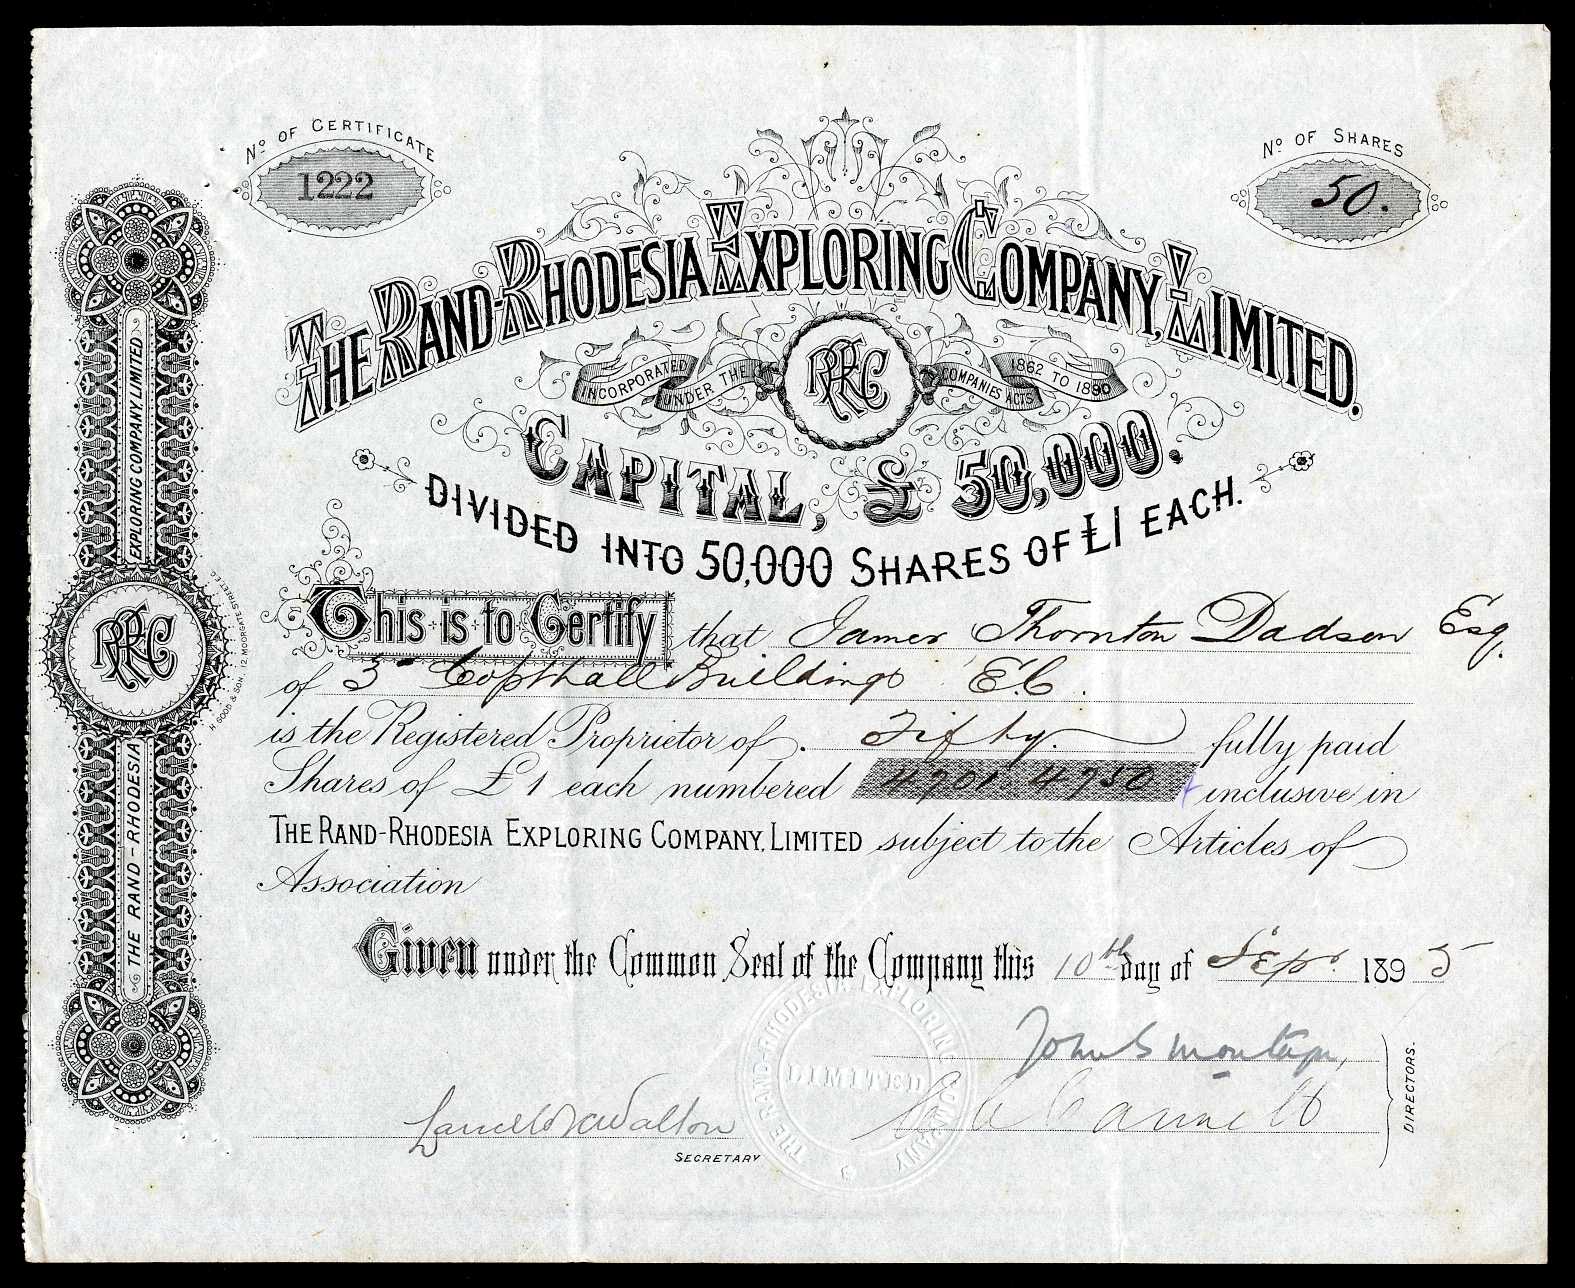 Nº OF CERTIFICATE
1222
Nº OF SHARES
50.
THE RAND-RHODESIA EXPLORING COMPANY, LIMITED.
INCORPORATED UNDER THE COMPANIES ACTS 1862 TO 1890
RREC
CAPITAL, £50,000.
DIVIDED INTO 50,000 SHARES OF £1 EACH.
This is to Certify that James Thornton Dadson Esq.
of 3 Copthall Buildings E.C.
is the Registered Proprietor of Fifty fully paid
Shares of £1 each numbered 4701 4750 inclusive in
THE RAND-RHODESIA EXPLORING COMPANY, LIMITED subject to the Articles of
Association
Given under the Common Seal of the Company this 10th day of Sepr. 1895
John S Montagu,
DIRECTORS.
Walton
SECRETARY
THE RAND-RHODESIA EXPLORING COMPANY
LIMITED
THE RAND-RHODESIA
RREC
EXPLORING COMPANY LIMITED
H GOOD & SON, 12, MOORGATE STREET E.C.